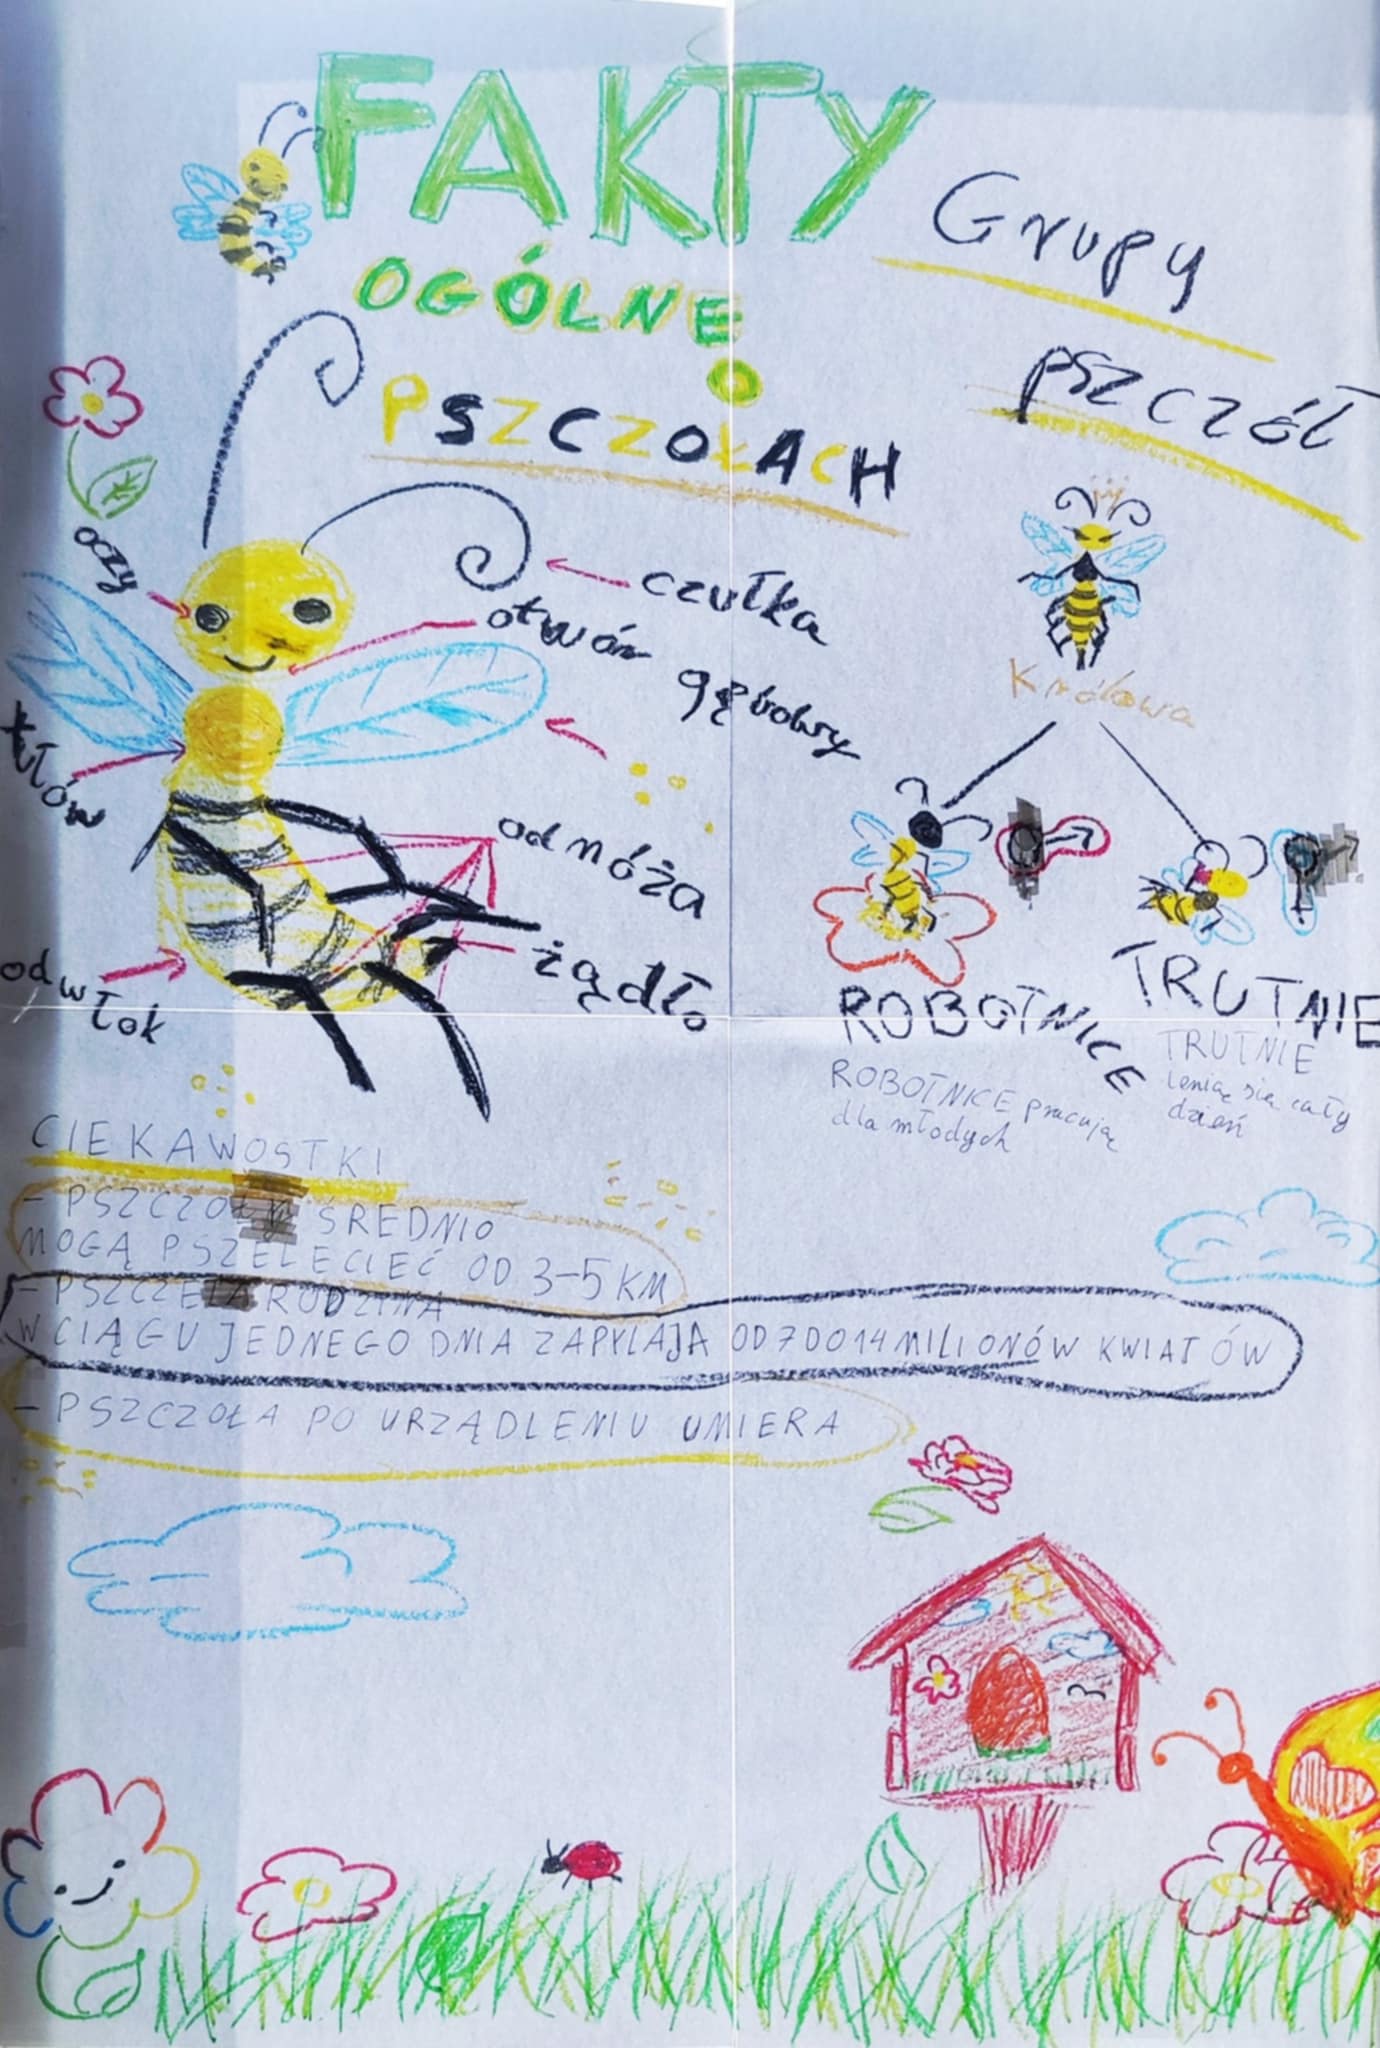 FAKTY
OGÓLNE
O
PSZCZOŁACH
oczy
czułka
otwór
gębowy
tłów
odnóża
odwłok
żądło
Grupy
pszczół
Królowa
ROBOTNICE
TRUTNIE
ROBOTNICE pracują
dla młodych
TRUTNIE
lenią się cały
dzień
CIEKAWOSTKI
- PSZCZOŁY ŚREDNIO
MOGĄ PSZELECIEĆ OD 3-5 KM
- PSZCZELA RODZINA
W CIĄGU JEDNEGO DNIA ZAPYLAJĄ OD 7 DO 14 MILIONÓW KWIATÓW
- PSZCZOŁA PO URZĄDLENIU UMIERA